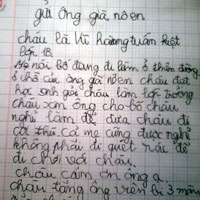 gửi ông già nôen
cháu là Vi hoàng tuấn kiệt
lớp 1B
Mẹ nói Bố đang đi làm ở thiên đường
ở chỗ của ông già nôen cháu đạt
học sinh giỏi cháu làm lớp trưởng
cháu xin ông cho bố cháu
nghỉ làm để đưa cháu đi
cả thứ. cả mẹ cũng được nghỉ
không phải đi quét rác để
đi chơi với cháu.
cháu cám ơn ông ạ
cháu tặng ông viên bi 3 màu